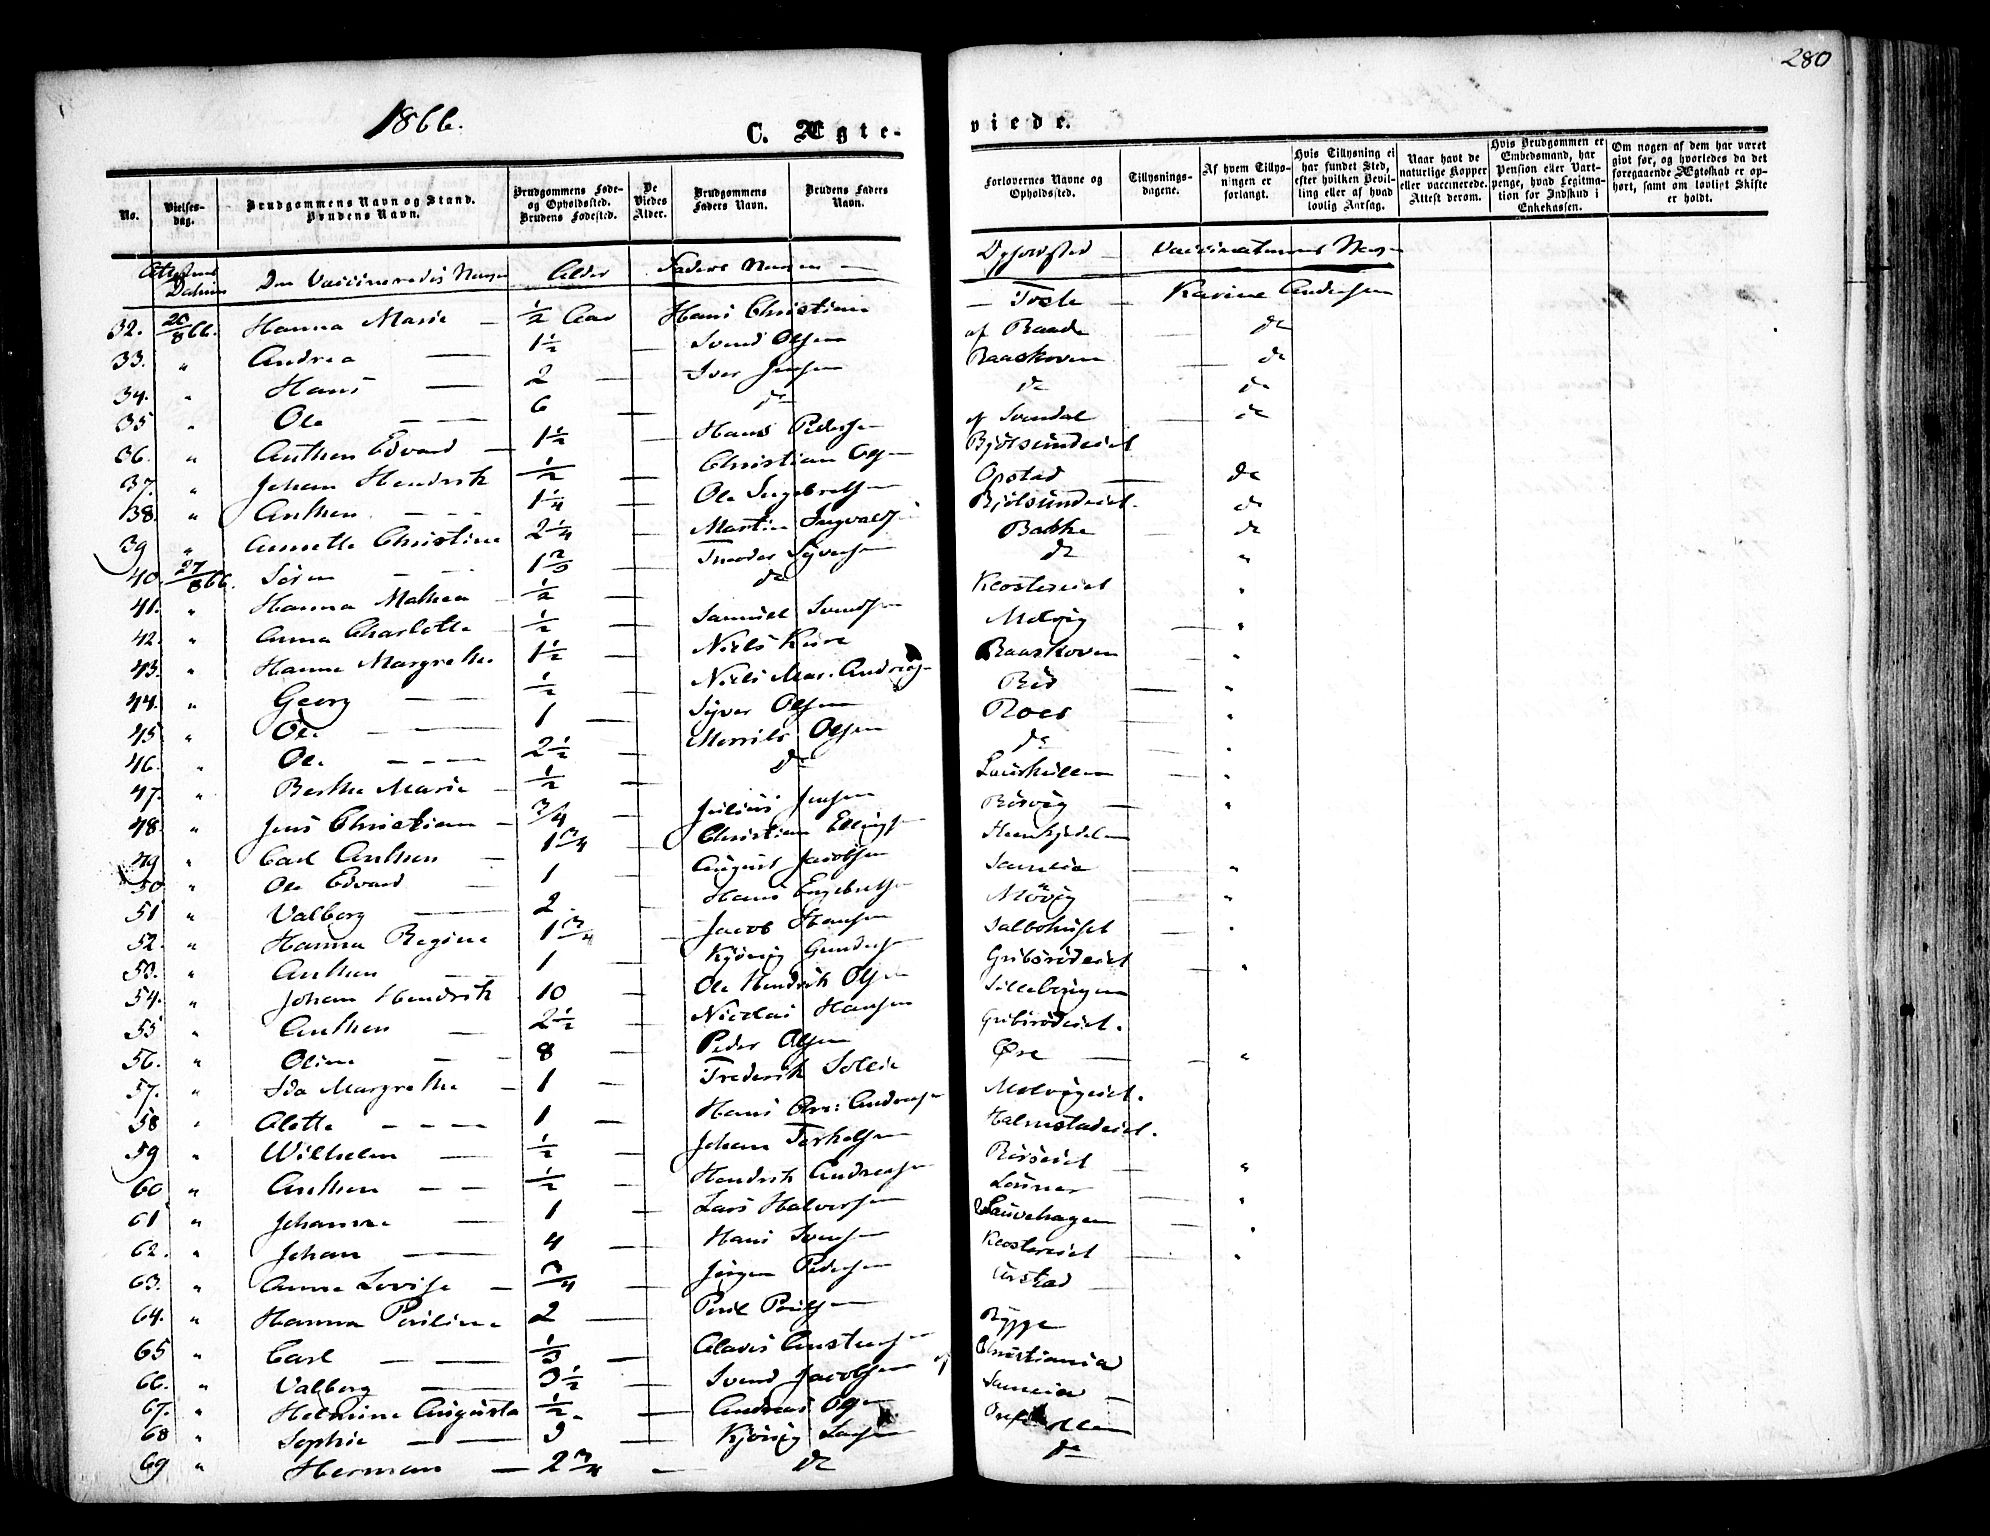 280
1866.
C. Ægte-
viede.
No.
Vielses-dag.
Brudgommens Navn og Stand.
Brudens Navn.
Brudgommens Føde- og Opholdssted.
Brudens Fødested.
De Viedes Alder.
Brudgommens Faders Navn.
Brudens Faders Navn.
Forlovernes Navne og Opholdssted.
Tillysnings-dagene.
Af hvem Tillysningen er forlangt.
Hvis Tillysning ei har fundet Sted, efter hvilken Bevilling eller af hvad lovlig Aarsag.
Naar havt de naturlige Kopper eller vaccinerede. Attest derom.
Hvis Brudgommen er Embedsmand, har Pension eller Vartpenge, hvad Legitmation for Indskud i Enkekassen.
Om nogen af dem har været givt før, og hvorledes da det foregaaende Ægteskab er ophørt, samt om lovligt Skifte er holdt.
Attestens Datum Den Vaccineredes Navn Alder Faders Navn Opholdssted Vaccinateurens Navn
32. 20/8 66. Hanna Marie ½ Aar Hans Christian Tosle Karine Andersen
33. " Andrea 1½ Svend Olsen af Raade do
34. " Hans 2 Iver Jensen Raaskoven do
35 " Ole 6 do do do
36. " Anthon Edvard 1½ Hans Pedersen af Svendal do
37. " Johan Hendrik ½ Christian Ols Bjølsundeiet
38. " Anthon 1¼ Ole Ingebretsen Opstad do
39 " Annette Christine 2¼ Martin Ingvalds Bjølsundeiet. do
40. 27/8 66. Søren Theodor Syversen Bakke do
41. " Hanna Mathea ½ do do "
42. " Anna Charlotte ½ Samuel Svendsen Klostereiet "
43. " Hanne Margrethe 1½ Niels Kure Melvig "
44. " Georg ½ Niels Mar. Andreas Raaskoven "
45 " Ole 1 Syver Olsen Rød "
46. " Ole 2½ Morrits Olsen Roes "
47. " Berthe Marie ½ do do "
48. " Jens Christian ¾ Julius Jensen "
49 " Carl Anthon 1¾ Christian Ellingsen Røsvig "
50 " Ole Edvard 1 August Jacobsen
51 " Valborg 2 Hans Engebretsen Saneia "
52. " Hanna Regine 1¾ Jacob Hansen Møvig "
53. " Anthon 1 Kjønig Gundersen Salbohuset "
54. " Johan Hendrik 10 Ole Hendrik Olsen Gribsrødeiet "
55 " Anthon 2½ Nicolai Hansen
56. " Oline 8 Peder Olsen Gribsrødeiet.
57. " Ida Margrethe 1 Frederik Sollie Øre "
58 " Alette 1 Hans Chr: Andreasen Melvigeiet.
59 " Wilhelm ½ Johan Torkelsen Halmstadeiet.
60 " Anthon ½ Hendrik Andreasen Røsseiet "
61 " Johanne 1 Lars Halvorsen Louner "
62. " Johan 4 Hans Svensen Lauvehagen "
63. " Anne Lovise ¾ Jørgen Pedersen Klostereiet "
64. " Hanna Pauline 2 Poul Poulsen
65 " Carl Olavis Rygge
66. " Valborg 3½ Svend Jacobsen af Christiania
67. " Helmine Augusta ½ Andreas Ols Saneia
68 " Sophie 3 Kjønig
69 " Herman 2¾ do do